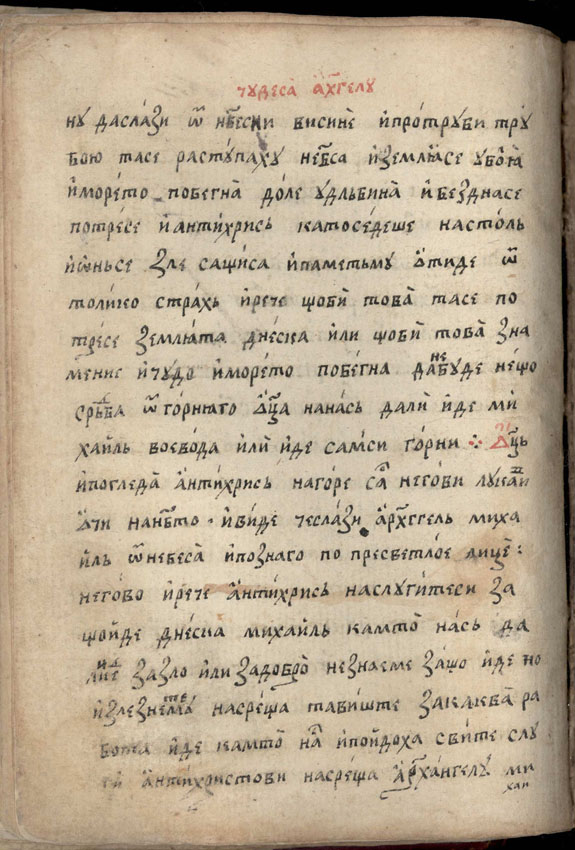 чꙋдеса̀ а҆рх҃гелꙋ
нꙋ даслази ѿ нб҃есни висинѐ ѝпротрꙋби трꙋ
бою тасе растꙋпахꙋ неб҃са ѝземлꙗ̀се ꙋбоꙗ̀
ѝморѐто побегна̀ до́ле ꙋдльбина̀ ѝбез̾днасе
потре́се ѝантѝхрись катосе́деше настоль
ѝѡ́ньсе зле сащиса ѝпаметьмꙋ ѿтиде ѿ
толико страхь ѝрече щобѝ това̀ тасе по
тре́се землꙗ̀та днеска ѝли щобѝ това̀ зна
мение ѝчю́до ѝморѐто побегна дане бꙋде нещо
срьдба ѿ го́рнꙗго ѿц҃а нанась далѝ иде ми
хаиль воево́да ѝлѝ иде самси го́рни ⁘ ѿц҃ь
ѝпогледа̀ а҆нтѝхрись нагоре са негови лꙋкави
ѻ҆чи нанб҃ето · ѝвиде чеслази а҆рх҃гель миха
иль ѿнебеса̀ ѝпознаго по пресветлое лицѐ :
него́во ѝрече а҆нтѝхрись наслꙋгѝтеси за
що̀йде днеска михаиль камто̀ нась да
ли иде за́зло ѝли задобро̀ незнаеме за́що иде но
ѝзлезнете мꙋ насреща тавиште закаква̀ ра
бота ѝде камто̀ на ѝпойдоха свите слꙋ
ги а҆нтѝхристови насреща а҆рха́нгель ми
хаи